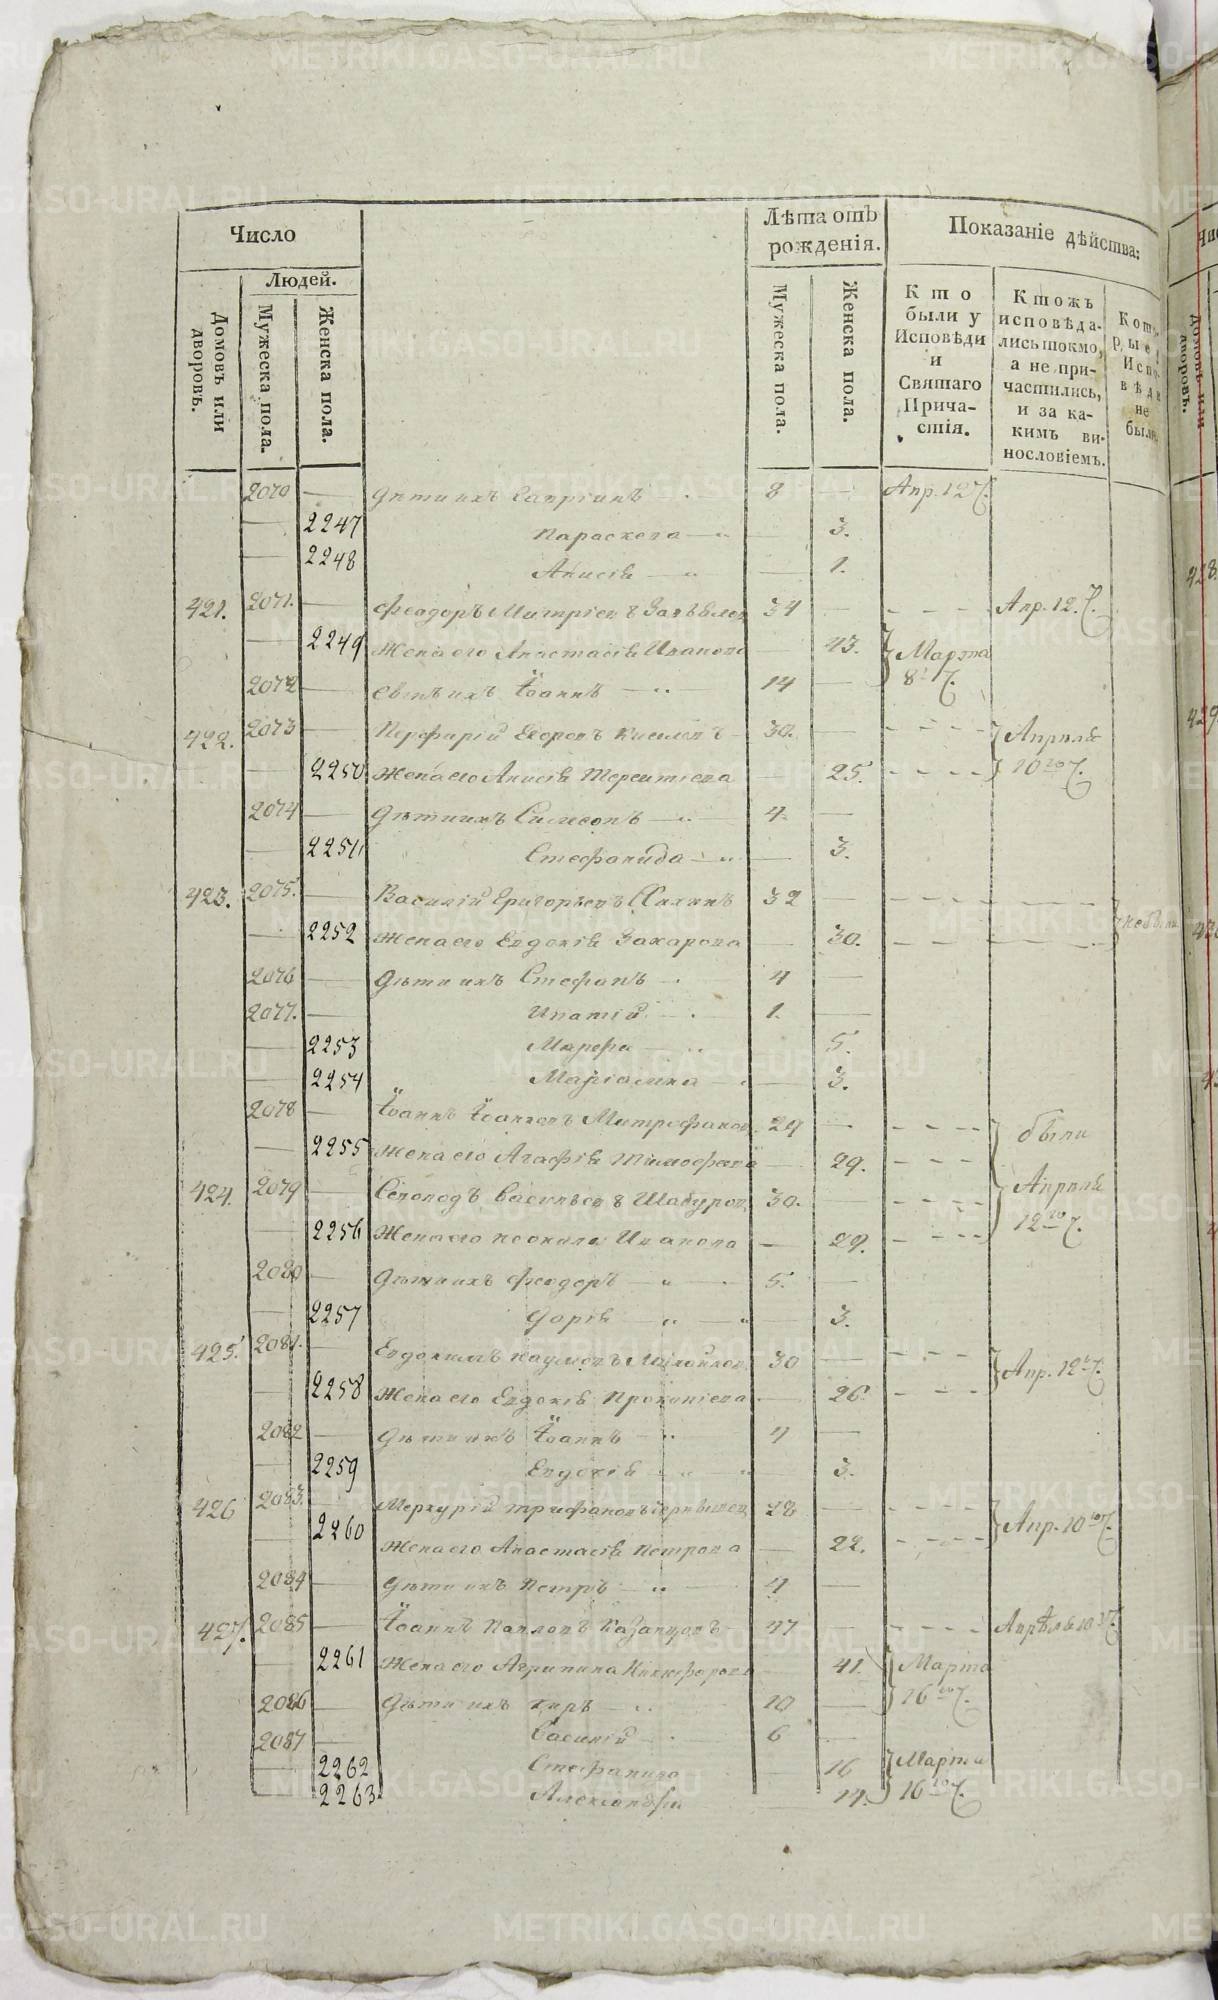 Число
Лѣта отъ рожденія.
Показаніе дѣйства:
Людей.
Домовъ или дворовъ.
Мужеска пола.
Женска пола.
Мужеска пола.
Женска пола.
Кто были у Исповѣди и Святаго Причастія.
Ктожъ исповѣдались токмо, а не причастились, и за какимъ винословіемъ.
2070 — Дѣти ихъ 8 — Апр. 12 Ч.
— 2247 Параскева — 3.
— 2248 Анисія — 1.
421. 2071. — Феодоръ 34 Апр. 12. Ч.
— 2249 Жена его Анастасія Иванова — 43. Марта
2072 — Сынъ ихъ Іоаннъ 14 — 8 Ч.
422. 2073 — Перфирій Егоровъ Киселевъ 30. — Апрѣля
— 2250 Жена его Анисія Терентіева — 25. 10 го Ч.
2074 — Дѣти ихъ Симеонъ 4. —
— 2251 Стефанида — 3.
423. 2075. — Василій Григорьевъ 32 —
— 2252 Жена его Евдокія Захарова — 30. не были
2076 — Дѣти ихъ Стефанъ 4 —
2077. — Ипатій 1. —
— 2253 Марфа — 5.
— 2254 Маріамна — 3.
2078 — Іоаннъ Іоанновъ Митрофанов 29 — были
— 2255 Жена его Агафія Тимофеева — 29.
424. 2079 — Васильевъ Шабуров 30. — Апрѣля
— 2256 Жена его Неонила Иванова — 29. 12 го Ч.
2080 — Дѣти ихъ Феодоръ 5. —
— 2257 Дарія — 3.
425. 2081. — Евдокимъ Наумовъ 30 — Апр. 12 Ч.
— 2258 Жена его Евдокія Прокопіева — 26.
2082 — Дѣти ихъ Іоаннъ 4 —
— 2259 Евдокія — 3.
426 2083. — Меркурій Трифановъ 22 — Апр. 10 го Ч.
— 2260 Жена его Анастасія Петрова — 22.
2084 — Дѣти ихъ Петръ 4 —
427. 2085 — Іоаннъ Павловъ Казанцовъ 47 — Апрѣля 10 Ч.
— 2261 Жена его Агрипина Никифорова 41. Марта
2086 — Дѣти ихъ Киръ 10 — 16 го Ч.
2087 — Василій 6 —
— 2262 Стефанида 16 Марта
— 2263 Александра — 14. 16 го Ч.